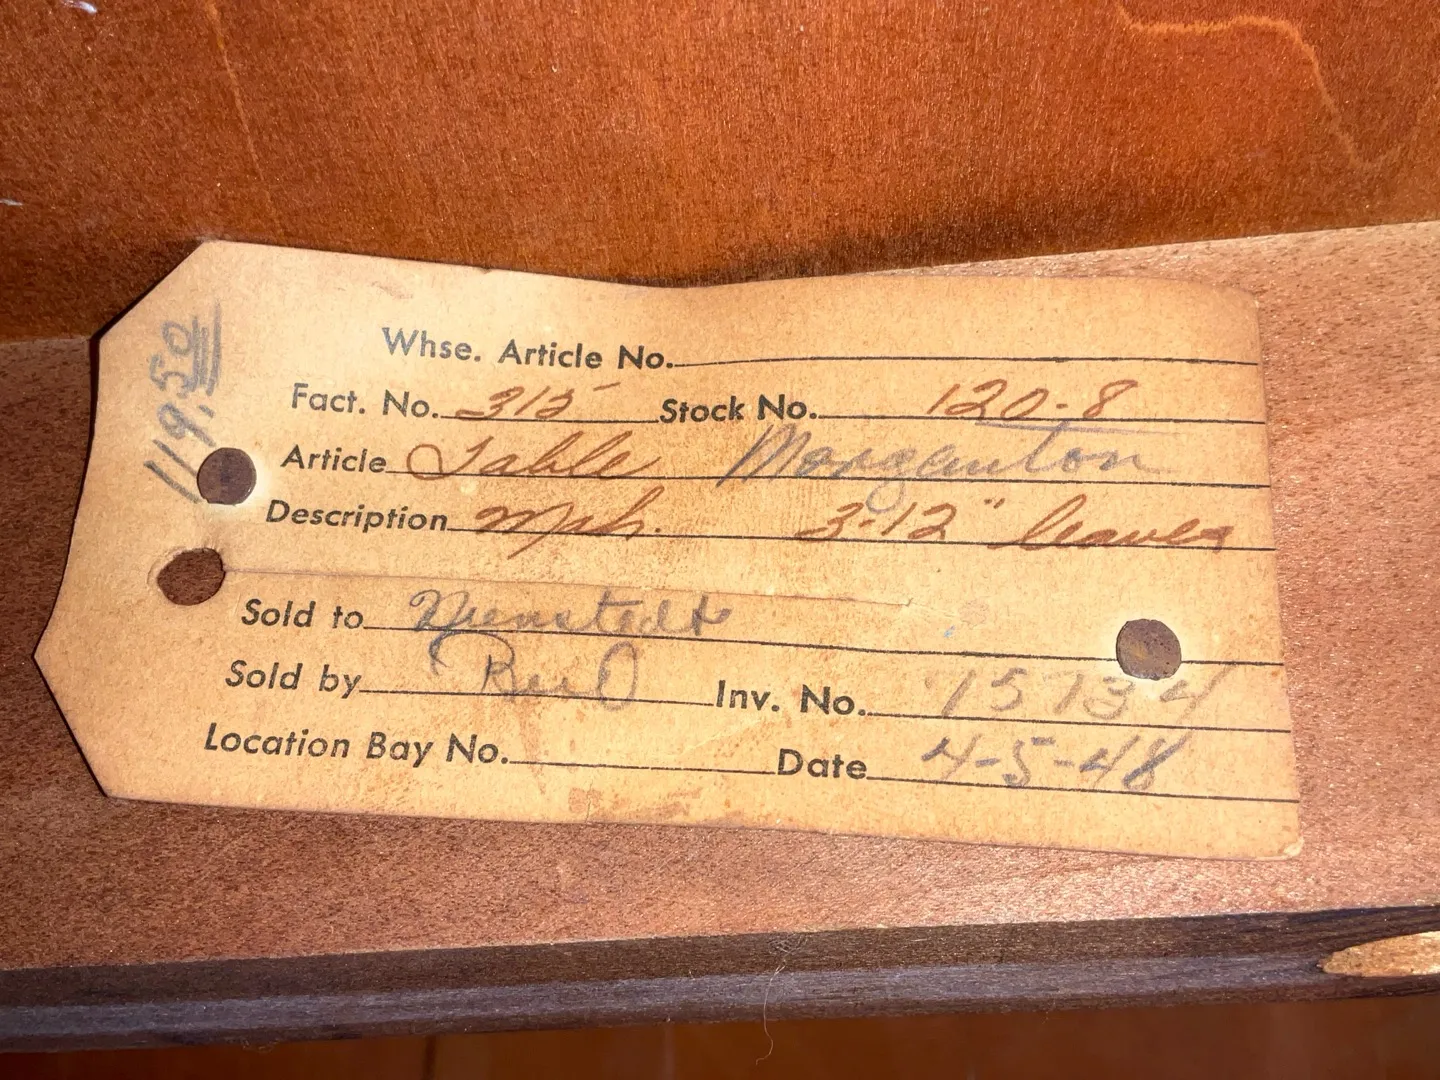 119.50
Whse. Article No.
Fact. No. 315 Stock No. 120-8
Article Table Morganton
Description Mah. 3-12" leaves
Sold to Nienstedt
Sold by Inv. No. 15734
Location Bay No. Date 4-5-48